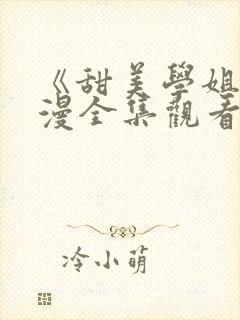 《甜美學姐
漫全集觀看
冷小萌